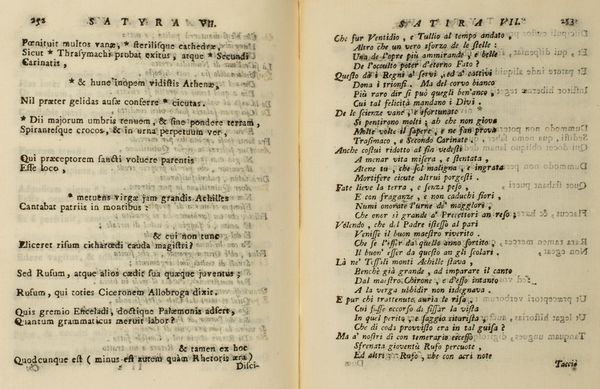 252 SATYRA VII.
Pœnituit multos vanæ, * sterilisque cathedræ,
Sicut * Thrasymachi probat exitus, atque * Secundi
Carinatis,
* & hunc inopem vidistis Athenæ,
Nil præter gelidas ausæ conferre * cicutas.
* Dii majorum umbris tenuem, & sine pondere terram,
Spirantesque crocos, & in urna perpetuum ver,
Qui præceptorem sancti voluere parentis
Esse loco,
* metuens virgæ jam grandis Achilles
Cantabat patriis in montibus:
& cui non tunc
Eliceret risum citharœdi cauda magistri?
Sed Rufum, atque alios cædit sua quæque juventus;
Rufum, qui toties Ciceronem Allobroga dixit.
Quis gremio Enceladi, doctique Palæmonis adfert,
Quantum grammaticus meruit labor?
& tamen ex hoc
Quodcunque est (minus est autem quàm Rhetoris æra)
Disci-
SATIRA VII. 253
Che fur Ventidio, e Tullio al tempo andato,
Altro che un vero sforzo de le stelle:
Una de l'opre più ammirande, e belle
De l'occulto poter d'eterno Fato?
Questo dà i Regni a' servi, ed a' cattivi
Dona i trionfi. Ma del corvo bianco
Più raro dir si può quegli ben'anco,
Cui tal felicità mandano i Divi.
De le scienze vane, e sfortunate
Si pentirono molti; ah che non giova
Molte volte il sapere, e ne fan prova
Trasimaco, e Secondo Carinate.
Anche costui ridotto al fin vedesti
A menar vita misera, e stentata,
Atene tu, che sol maligna, e ingrata
Mortifere cicute altrui porgesti.
Fate lieve la terra, e senza peso,
E con fraganze, e non caduchi fiori,
Numi onorate l'urne de' maggiori,
Che onor ì grande a' Precettori an reso;
Volendo, che del Padre istesso al pari
Venisse il buon maestro riverito.
Che se l'esser da quello anno sortito,
Il buon' esser da questo an gli scolari.
Là ne' Tessali monti Achille stava,
Benchè già grande, ad imparare il canto
Dal maestro Chirone, e d'esso intanto
A la verga ubbidir non isdegnava.
E pur chi trattenute auria le risa,
Cui fusse occorso di fissar la vista
In quel perito, e saggio citarista,
Che di coda provvisto era in tal guisa?
Ma a' nostri dì con temerario eccesso
Sfrenata gioventù Rufo percuote,
Ed altri. Rufo, che con acri note
Taccià